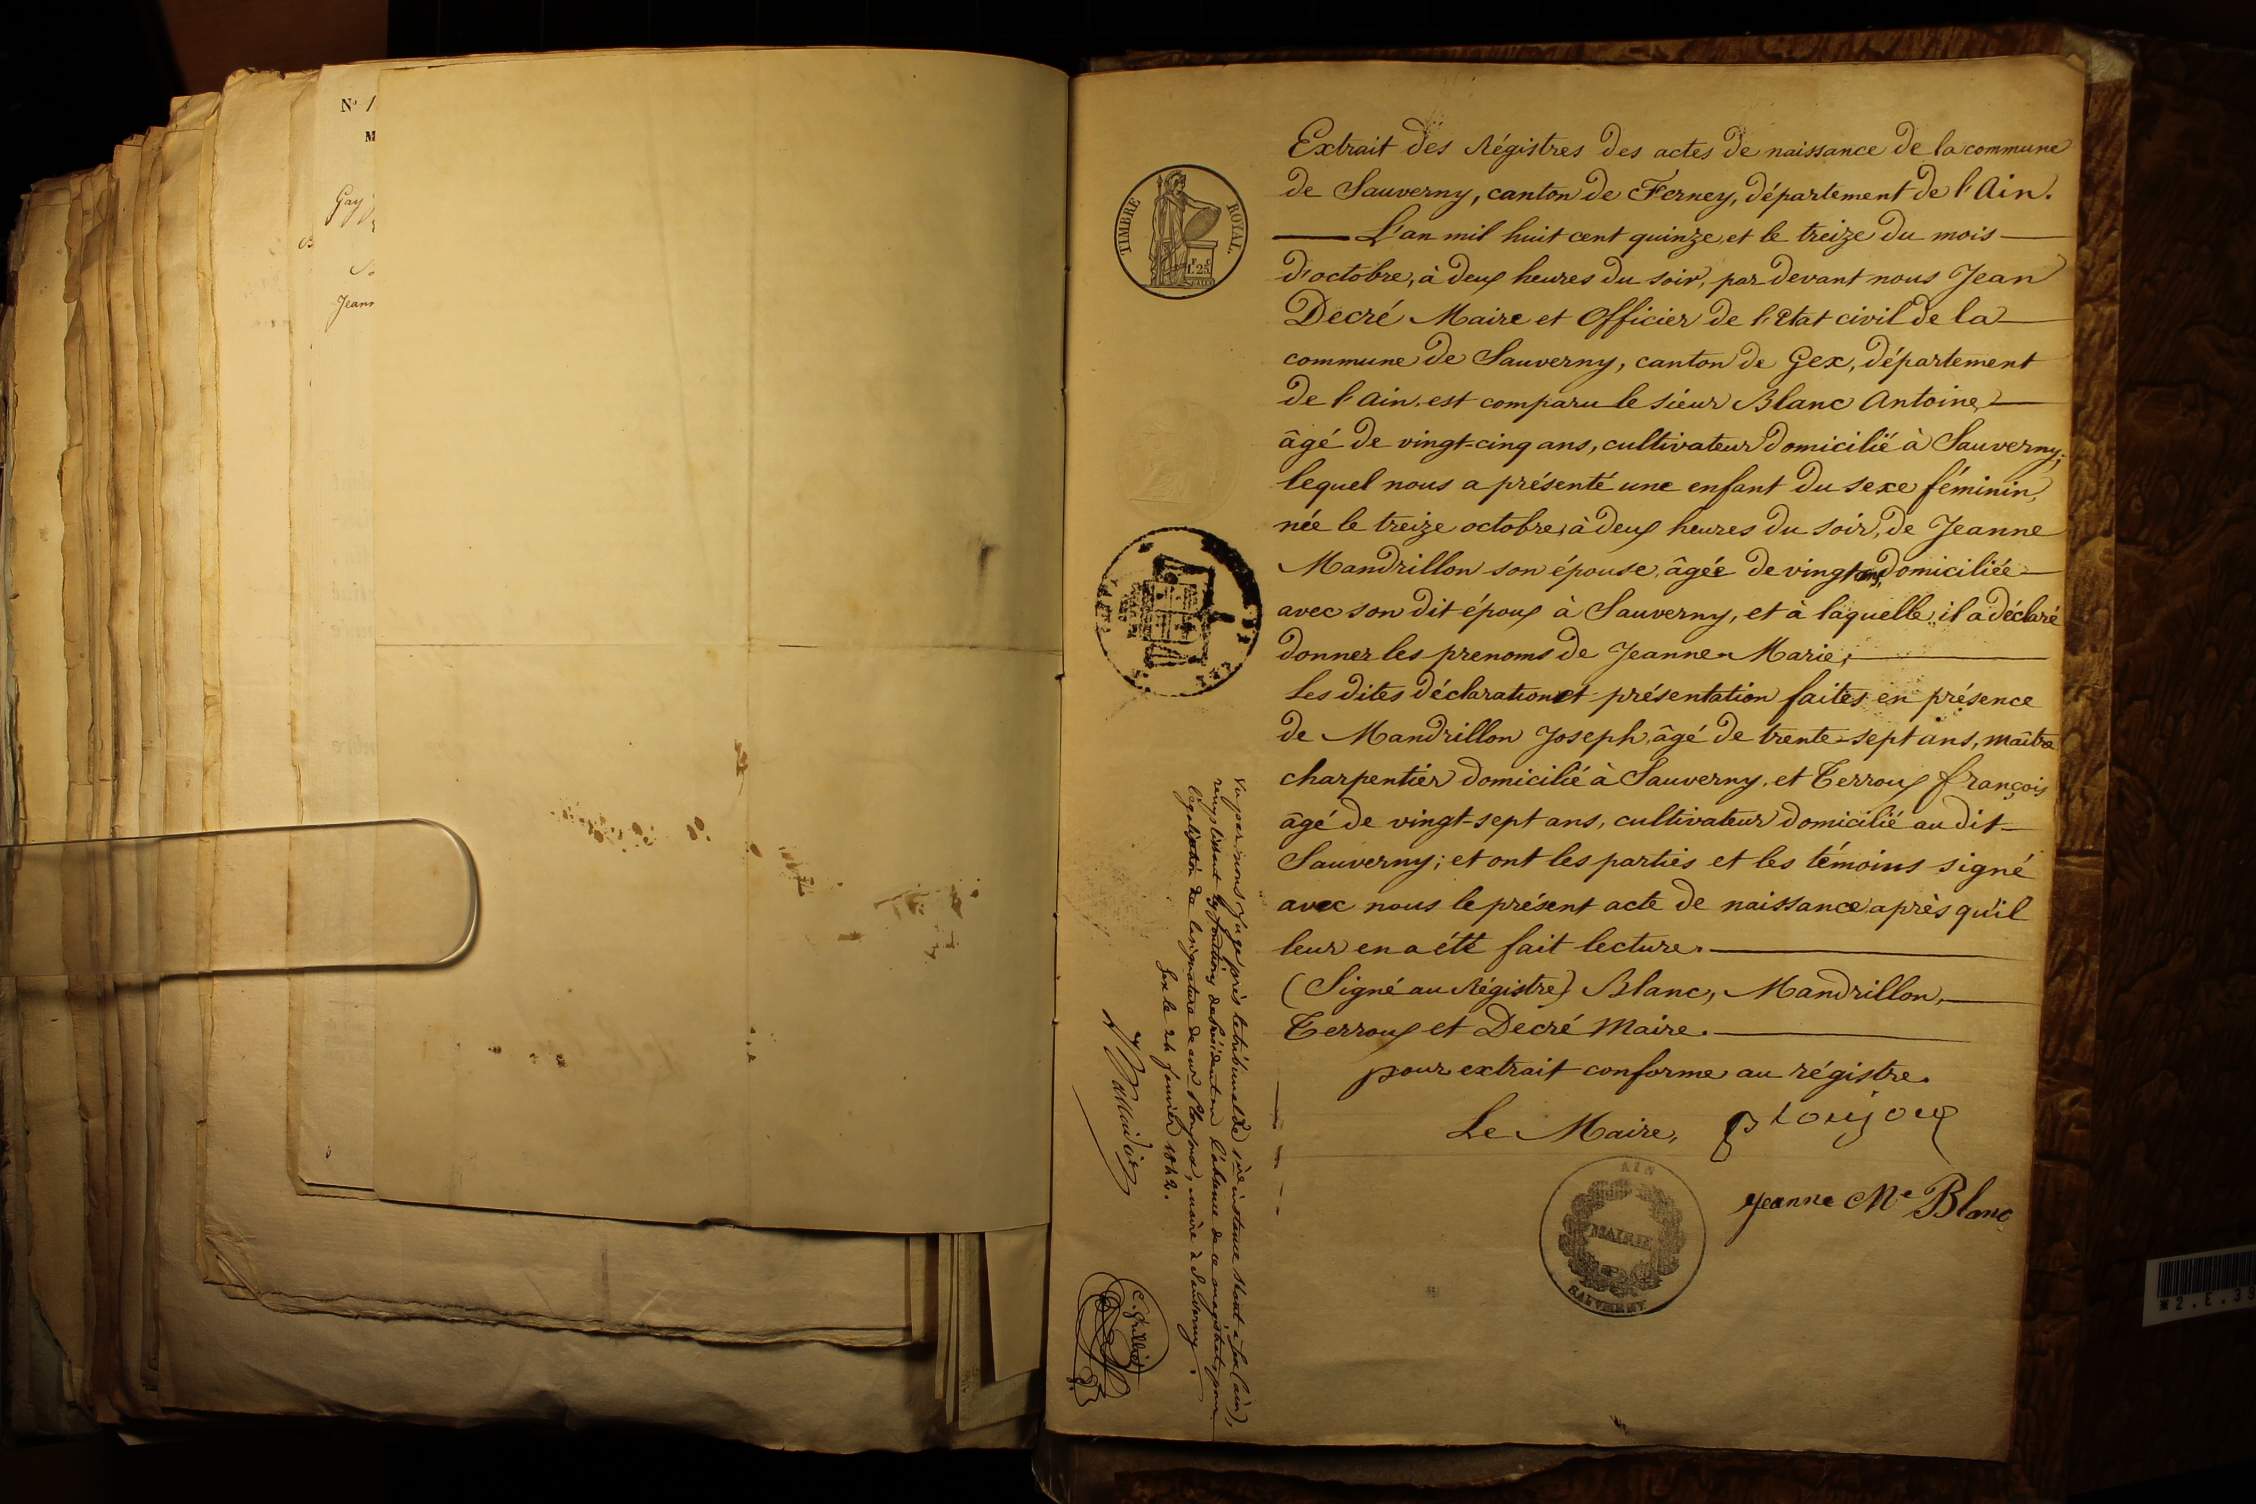 N°
M
Gay
Jean
TIMBRE ROYAL.
1. 25
Extrait des Régistres des actes de naissance de la commune
de Sauverny, canton de Ferney, département de l'Ain.
L'an mil huit cent quinze, et le treize du mois
d'octobre, à deux heures du soir, par devant nous Jean
Decré Maire et Officier de l'Etat civil de la
commune de Sauverny, canton de Gex, département
de l'Ain, est comparu le sieur Blanc Antoine,
âgé de vingt-cinq ans, cultivateur domicilié à Sauverny;
lequel nous a présenté une enfant du sexe féminin,
née le treize octobre, à deux heures du soir, de Jeanne
Mandrillon son épouse, âgée de vingt ans, domiciliée
avec son dit époux à Sauverny, et à laquelle, il a déclaré
donner les prenoms de Jeanne-Marie;
Les dites déclaration et présentation faites en présence
de Mandrillon Joseph, âgé de trente-sept ans, maître
charpentier domicilié à Sauverny, et Terroux françois
âgé de vingt-sept ans, cultivateur domicilié au dit
Sauverny; et ont les parties et les témoins signé
avec nous le présent acte de naissance après qu'il
leur en a été fait lecture.
(Signé au Régistre) Blanc, Mandrillon,
Terroux et Decré Maire.
pour extrait conforme au régistre.
Le Maire,
Jeanne Me Blanc
AIN
MAIRIE
SAUVERNY
Vu par nous, Juge près le tribunal de 1ère instance séant à Gex (ain),
remplissant les fonctions de Président en l'absence de ce magistrat, pour
légalisation de la signature de Mr, maire de Sauverny.
Gex le 24 Janvier 1842.
*2.E.39